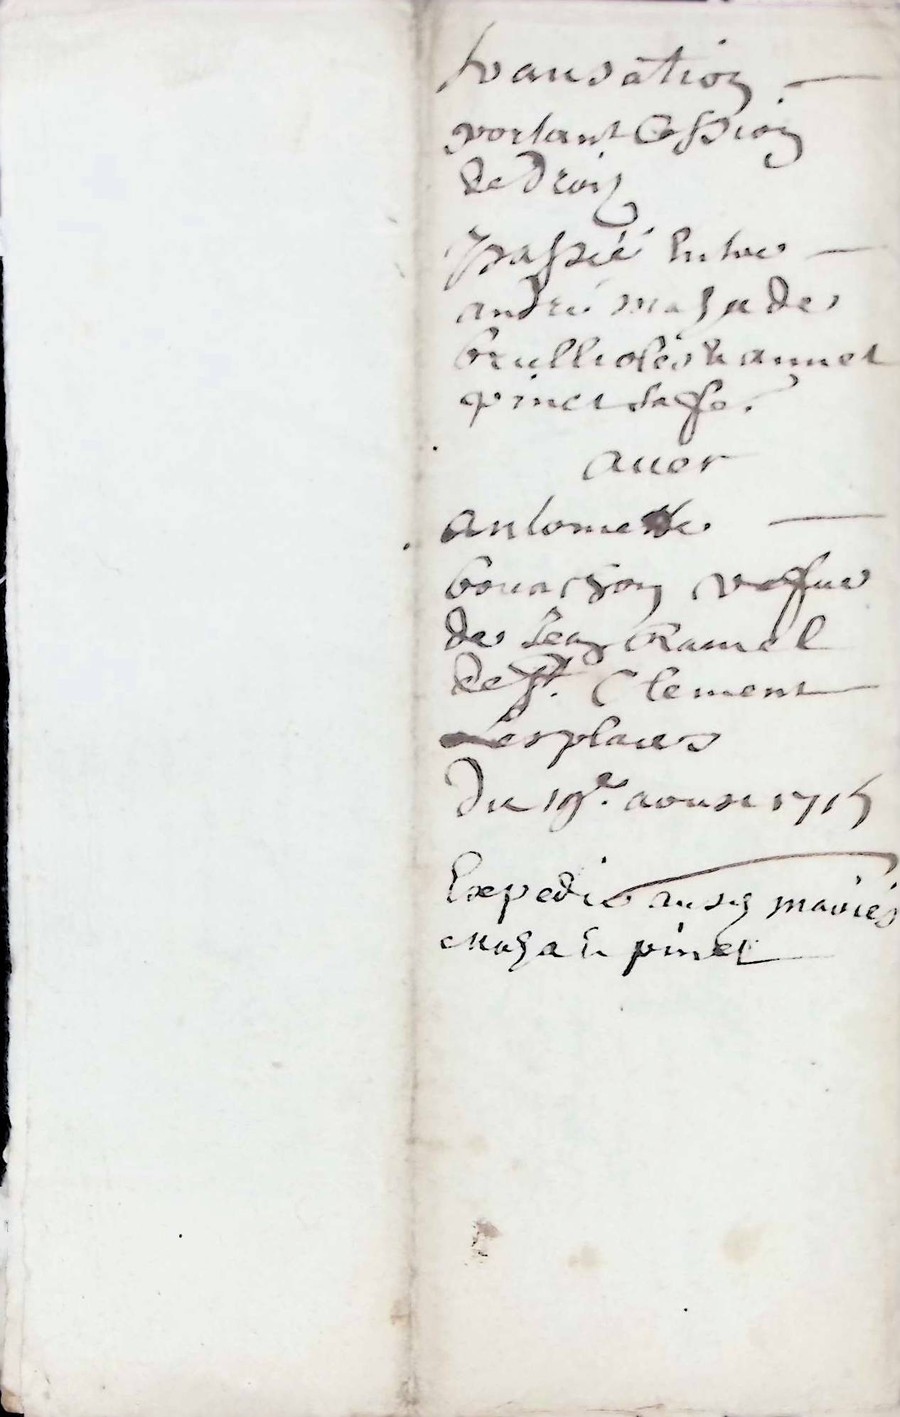 Transation
portant Cession
de Droiz
Passée Entre
andré maza de
brulliolés & annet
pinet sa fe.
auec
antoinette
bouachon veſſue
de Jean Ramel
de St. Clement
Les places
Du 19e. aoust 1715
Expedié ausd mariés
Maza & pinet